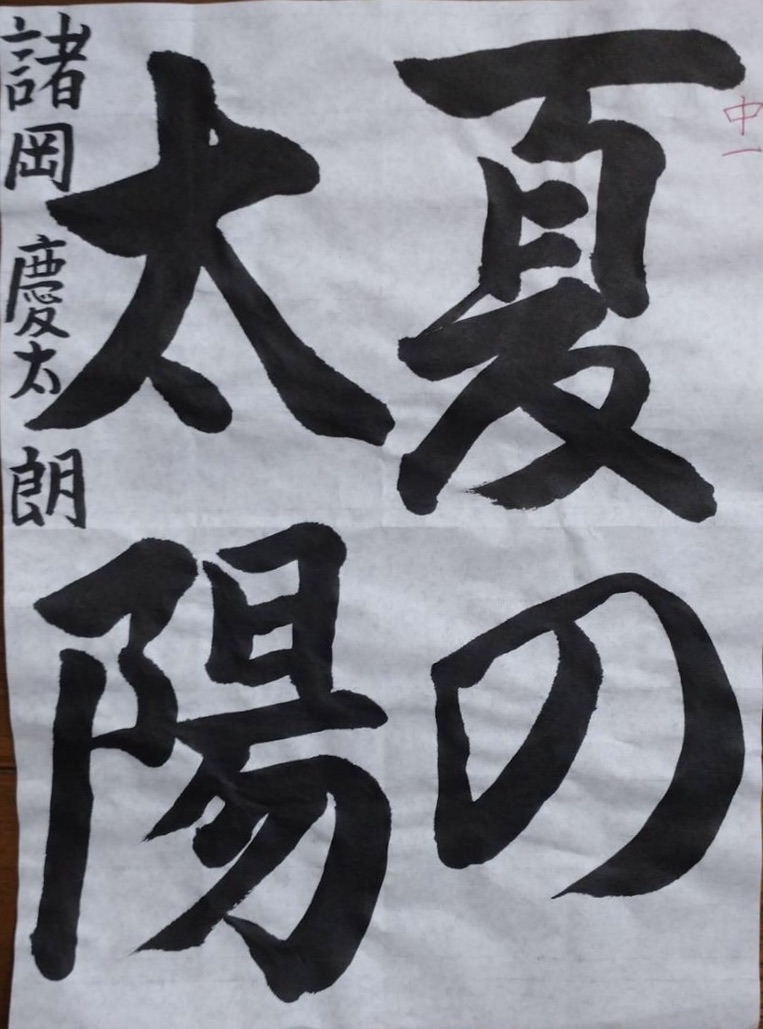 中一
夏の
太陽
諸岡 慶太朗